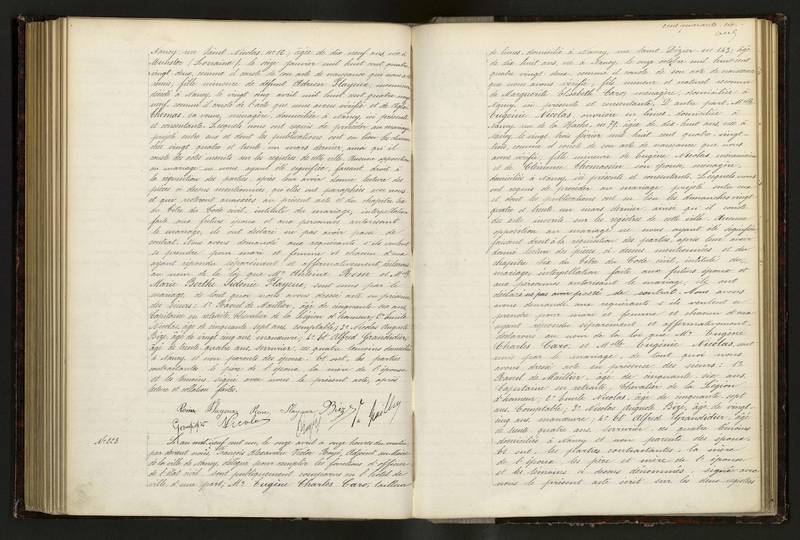 Nancy rue Saint Nicolas, no 12, âgée de dix neuf ans, née à
Munster (Lorraine), le onze janvier mil huit cent quatre
vingt deux, comme il conste de son acte de naissance que nous avons
fille mineure de Adrien Playne,
décédé à Nancy, le vingt cinq avril mil huit cent quatre vingt
neuf, comme il conste de l'acte que nous avons vérifié et de
Thomas, sa veuve, ménagère, domiciliée à Nancy, ici présente
et consentante. Lesquels nous ont requis de procéder au mariage
projeté entre eux et dont les publications ont eu lieu les dimanches
vingt quatre et trente un mars dernier, ainsi qu'il
conste des actes inscrits sur les registres de cette ville. Aucune opposition
au mariage ne nous ayant été signifiée, faisant droit à
la réquisition des parties, après leur avoir donné lecture des
pièces ci dessus mentionnées, qui elles ont paraphées avec nous
et qui resteront annexées au présent acte et du chapitre six
du titre du Code civil, intitulé du mariage, interpellation
faite aux futurs époux et aux personnes autorisant
le mariage, ils ont déclaré ne pas avoir passé de
contrat. Nous avons demandé aux requérants s'ils veulent
se prendre pour mari et femme et chacun d'eux
ayant répondu séparément et affirmativement, déclarons
au nom de la loi que Mr Rom et Mlle
Marie Berthe Playne, sont unis par le
mariage, de tout quoi nous avons dressé acte en présence
des sieurs: 1° Raoul de Maillier, âgé de cinquante six ans,
Capitaine en retraite, Chevalier de la Légion d'honneur; 2° Emile
Nicolas, âgé de cinquante sept ans, comptable; 3° Nicolas Auguste
Bizé, âgé de vingt cinq ans, manœuvre; 4° et Alfred Grandidier,
âgé de trente quatre ans, serrurier, ces quatre témoins domiciliés
à Nancy et non parents des époux. Et ont, les parties
contractantes, le père de l'époux, la mère de l'épouse
et les témoins, signé avec nous le présent acte, après
lecture et collation faites.
Nicolas
No 223
L'an mil neuf cent un, le onze avril à onze heures du matin,
par devant nous, François Alexandre Victor Adjoint au Maire
de la ville de Nancy, délégué pour remplir les fonctions d'officier
de l'État civil, sont publiquement comparus en l'hôtel de
ville, d'une part, Mr Eugène Charles Caro, tailleur
cent quarante six
de limes, domicilié à Nancy, rue Saint Dizier, no 143, âgé
de dix huit ans, né à Nancy, le onze octobre mil huit cent
quatre vingt deux, comme il conste de son acte de naissance
que nous avons vérifié, fils mineur et naturel reconnu
de Marguerite Elisabeth Caro, ménagère, domiciliée à
Nancy, ici présente et consentante; D'autre part, Mlle
Eugénie Nicolas, ouvrière en limes, domiciliée à
Nancy, rue de la Hache, no 79, âgée de dix huit ans, née à
Nancy, le vingt trois février mil huit cent quatre-vingt-
trois, comme il conste de son acte de naissance que nous
avons vérifié, fille mineure de Eugène Nicolas,
et de Thomassin son épouse, ménagère,
domiciliés à Nancy, ici présents et consentants. Lesquels nous
ont requis de procéder au mariage projeté entre eux
et dont les publications ont eu lieu les dimanches vingt
quatre et trente un mars dernier, ainsi qu'il conste
des actes inscrits sur les registres de cette ville. Aucune
opposition au mariage ne nous ayant été signifiée
faisant droit à la réquisition des parties, après leur avoir
donné lecture des pièces ci dessus mentionnées et du
chapitre six du titre du Code civil, intitulé du
mariage, interpellation faite aux futurs époux et
aux personnes autorisant le mariage, ils ont
déclaré ne pas avoir passé de contrat. Nous avons
demandé aux requérants s'ils veulent se
prendre pour mari et femme et chacun d'eux
ayant répondu séparément et affirmativement,
déclarons au nom de la loi que Mr Eugène
Charles Caro et Mlle Eugénie Nicolas, sont
unis par le mariage, de tout quoi nous
avons dressé acte en présence des sieurs: 1°
Raoul de Maillier, âgé de cinquante six ans,
Capitaine en retraite, Chevalier de la Légion
d'honneur; 2° Emile Nicolas, âgé de cinquante sept
ans, Comptable; 3° Nicolas Auguste Bizé, âgé de vingt-
cinq ans, manœuvre; 4° et Alfred Grandidier, âgé
de trente quatre ans, serrurier, ces quatre témoins
domiciliés à Nancy et non parents des époux.
Et ont, les parties contractantes, la mère
de l'époux, les père et mère de l'épouse
et les témoins ci dessus dénommés, signé avec
nous le présent acte écrit sur les deux registres